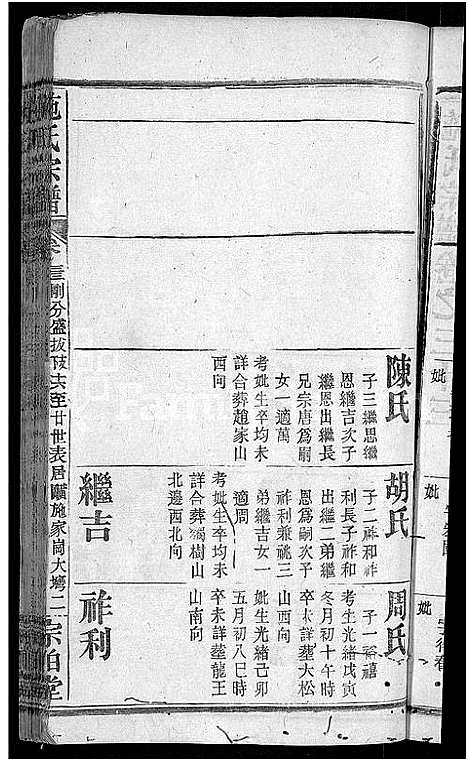 施氏宗譜
卷之三剛分盛拔
十六至廿世表居
施家岡大塆
二
宗伯堂
妣
陳氏
子三繼思繼
恩繼吉次子
繼恩出繼長
兄宗唐為嗣
女一適萬
考妣生卒均未
詳合葬趙家山
西向
妣
胡氏
子二祚和祚
利長子祚和
出繼二弟繼
恩為嗣次子
祚利兼祧三
弟繼吉女一
適周
考妣生卒均未
詳合葬獨樹山
北邊西北向
繼吉
妣
周氏
子一裕禧
考生光緒戊寅
冬月初十午時
卒未詳葬大松
山西向
妣生光緒己卯
五月初八巳時
卒未詳葬龍王
山南向
祚利